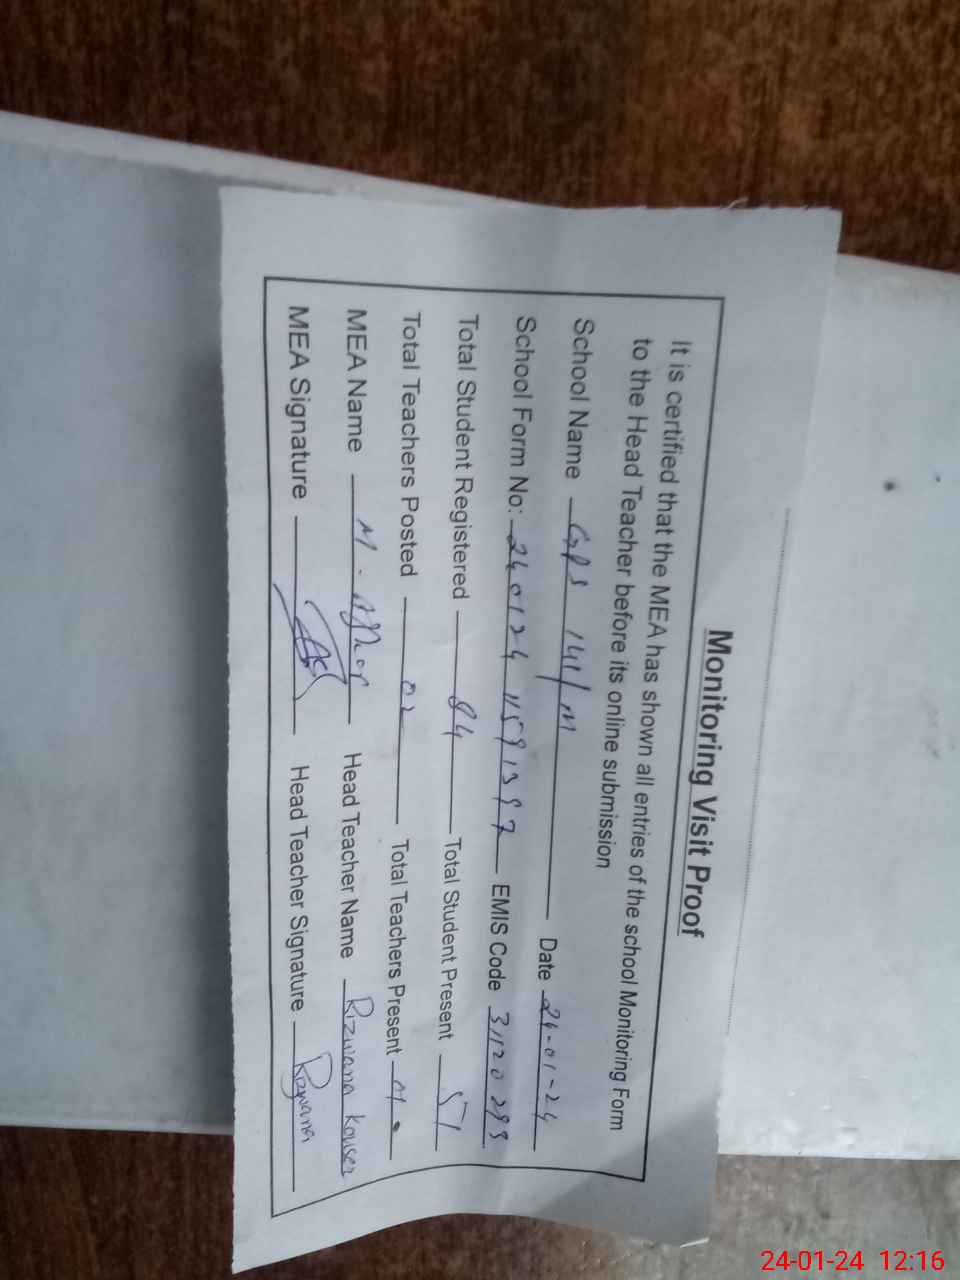 Monitoring Visit Proof
It is certified that the MEA has shown all entries of the school Monitoring Form
to the Head Teacher before its online submission
School Name GPS 141/M Date 24-01-24
School Form No: 240124 EMIS Code
Total Student Registered 84 Total Student Present 51
Total Teachers Posted 02 Total Teachers Present
MEA Name M. Head Teacher Name Rizwana Kouser
MEA Signature Head Teacher Signature Rizwana
24-01-24 12:16